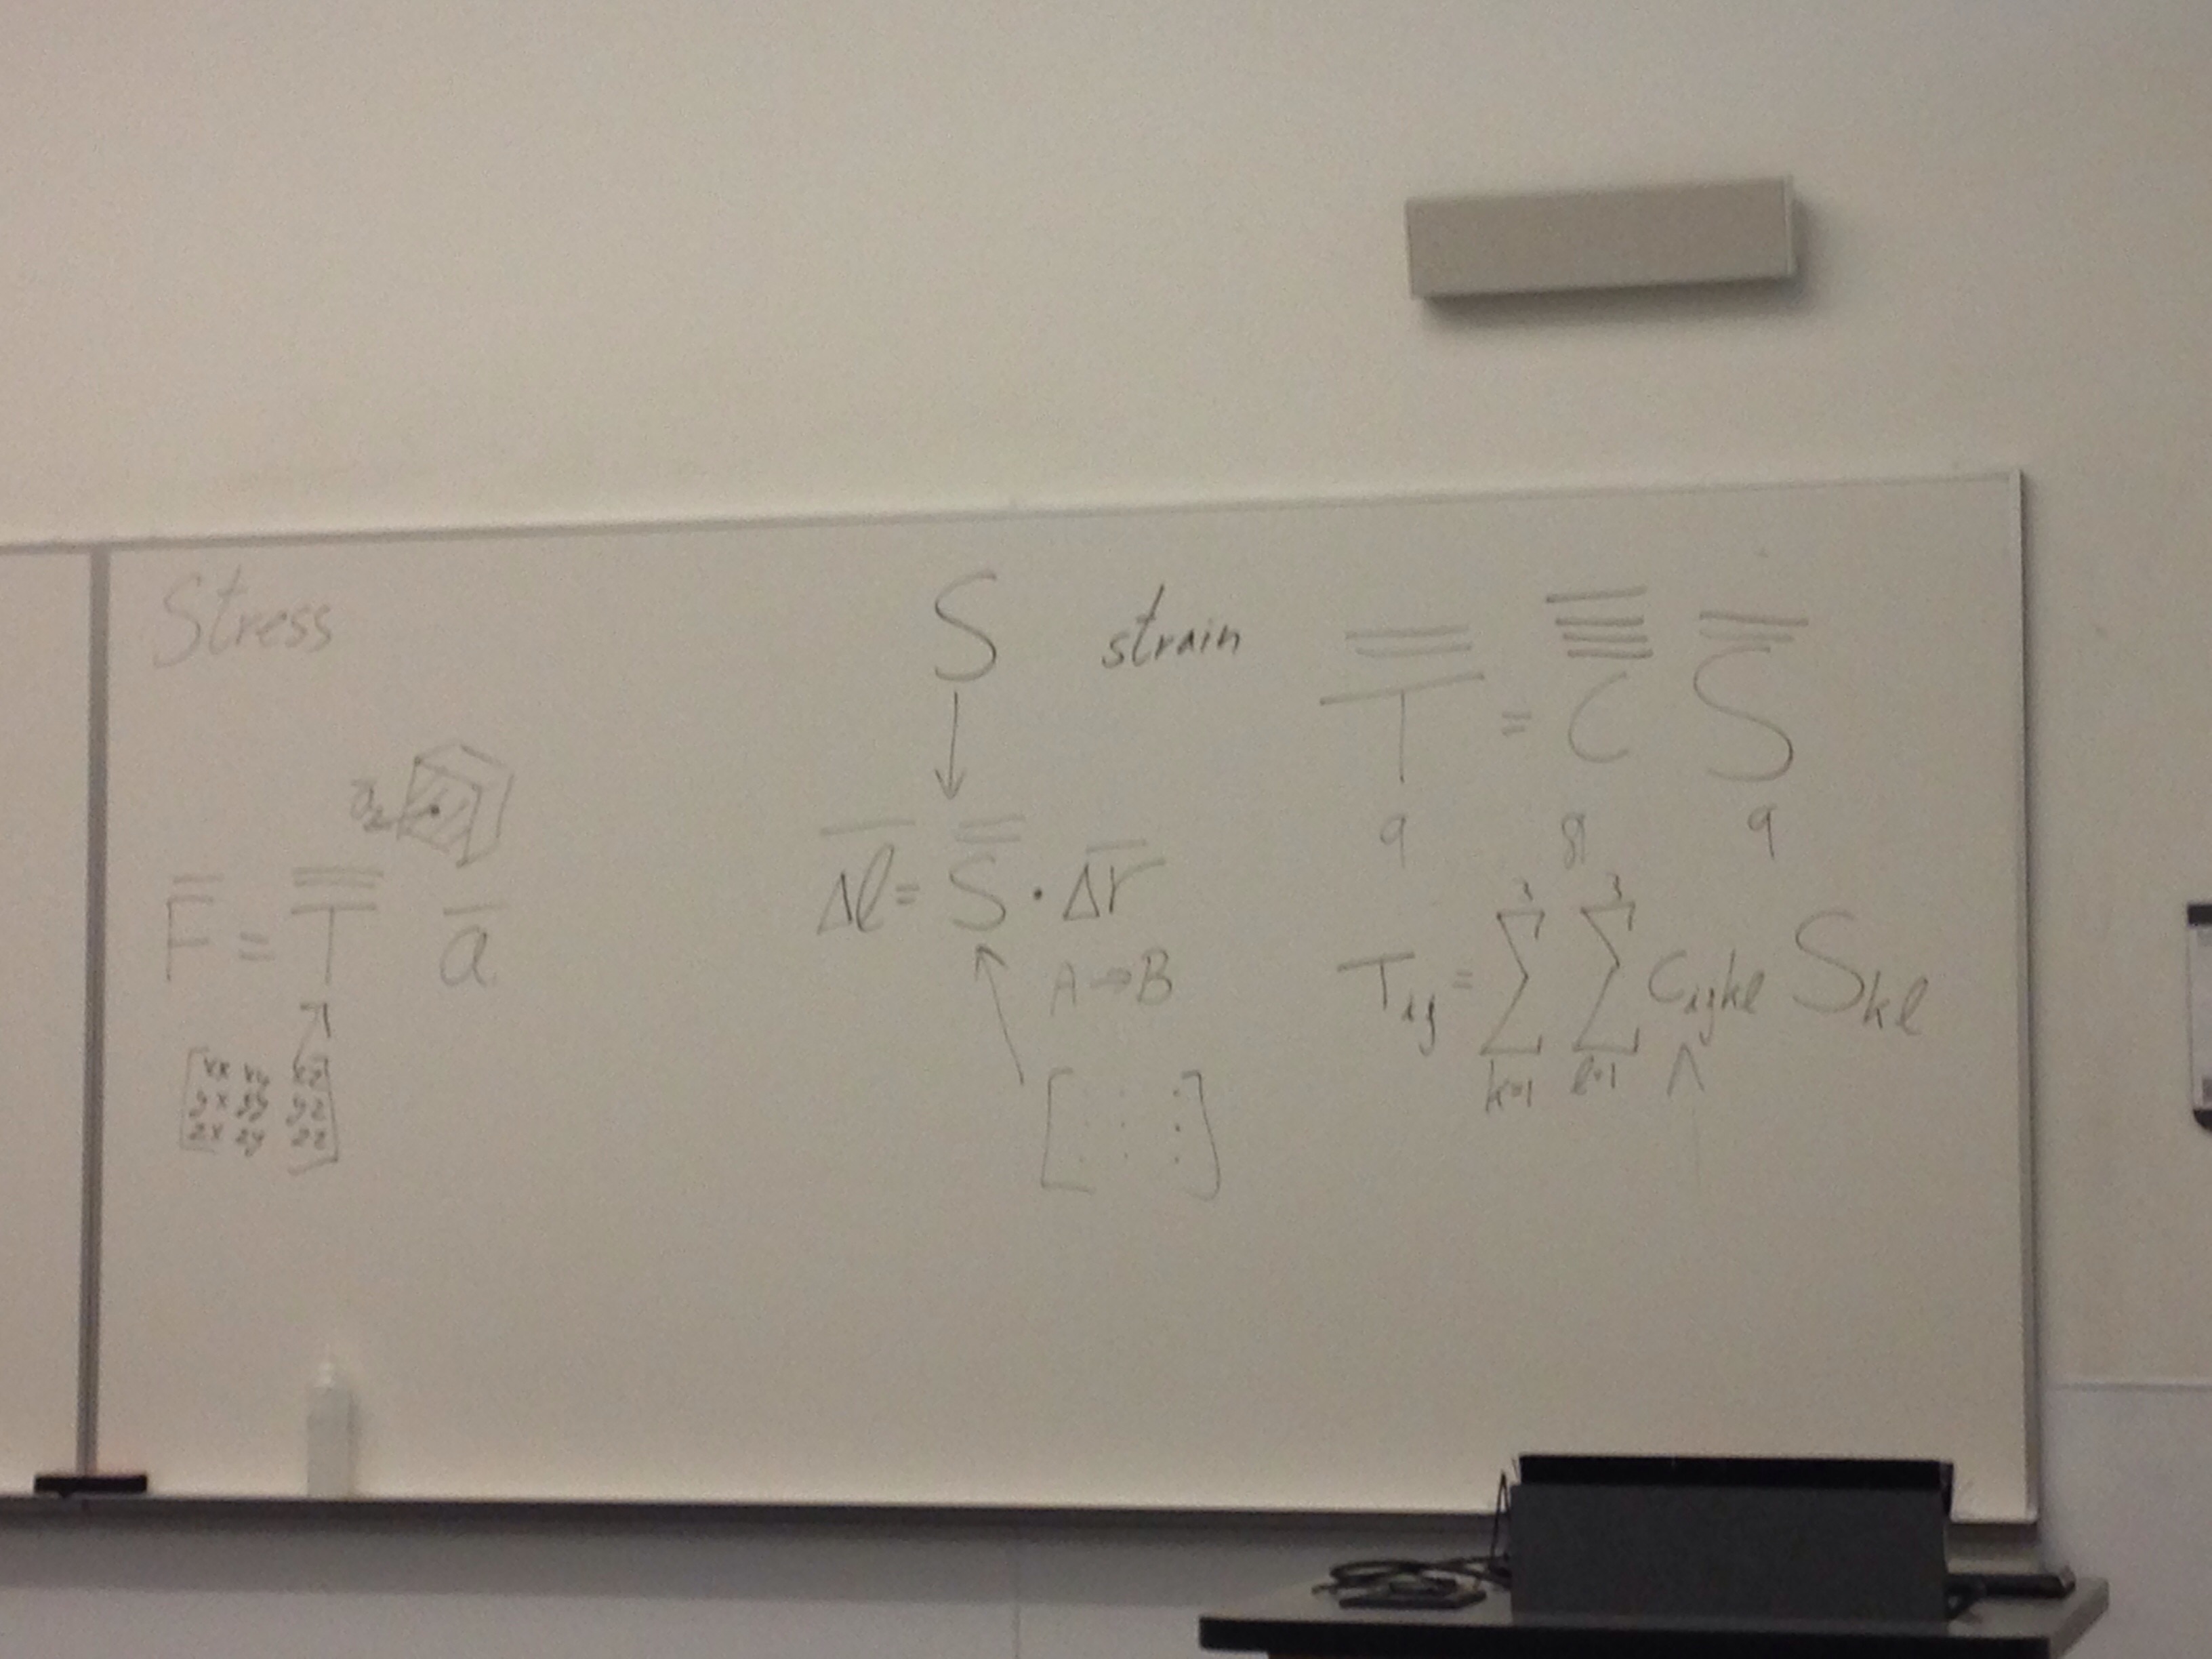 Stress
F̅ = T̿ a̅
xx xy xz
yx yy yz
zx zy zz
S strain
Δl̅ = S̿ · Δr̅
A → B
T̿ = C S̿
9 81 9
T_ij = Σ_{k=1}^{3} Σ_{l=1}^{3} C_ijkl S_kl